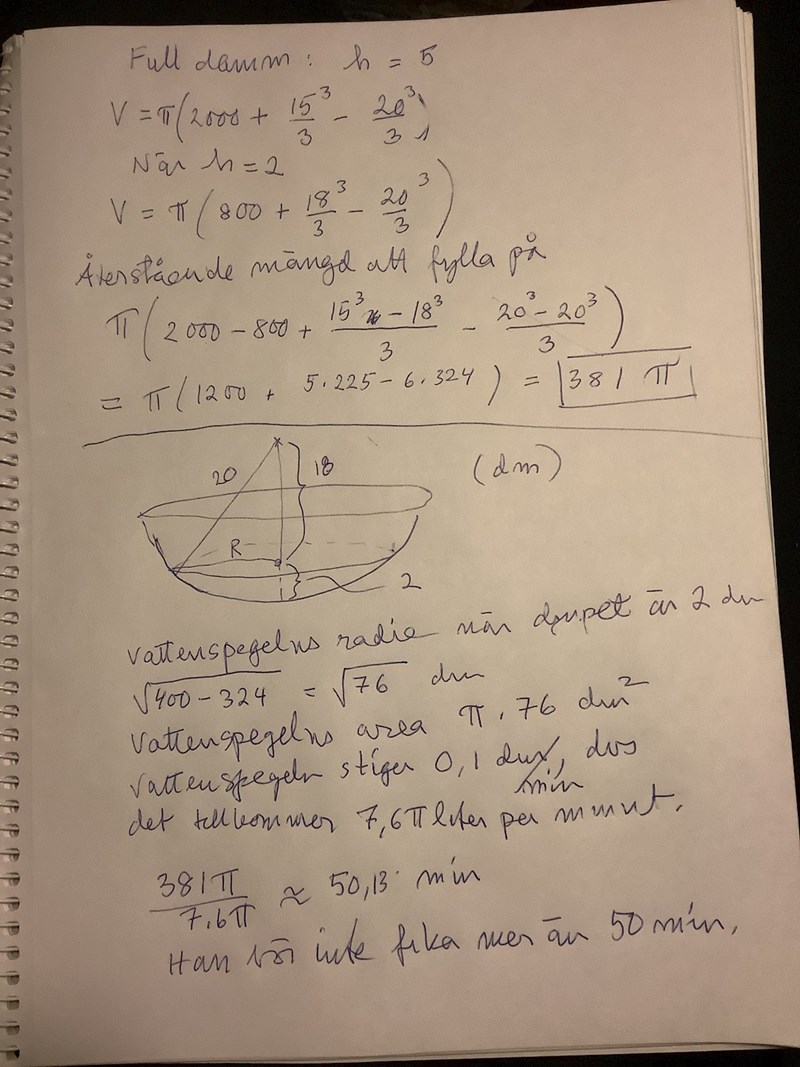 Full damm: h = 5
V = π(2000 + 15³/3 − 20³/3)
När h = 2
V = π(800 + 18³/3 − 20³/3)
Återstående mängd att fylla på
π(2000 − 800 + (15³ − 18³)/3 − (20³ − 20³)/3)
= π(1200 + 5·225 − 6·324) = 381 π
20
18
(dm)
R
2
Vattenspegelns radie när djupet är 2 dm
√(400 − 324) = √76 dm
Vattenspegelns area π · 76 dm²
Vattenspegeln stiger 0,1 dm/min, dvs
det tillkommer 7,6π liter per minut.
381π/7,6π ≈ 50,13 min
Han bör inte fika mer än 50 min.